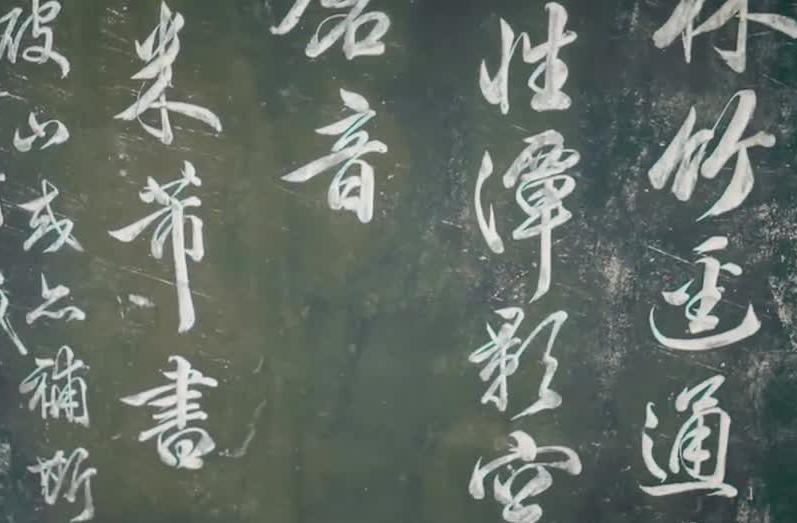 林竹逕通
性潭影空
音
米芾書
破山或補斯